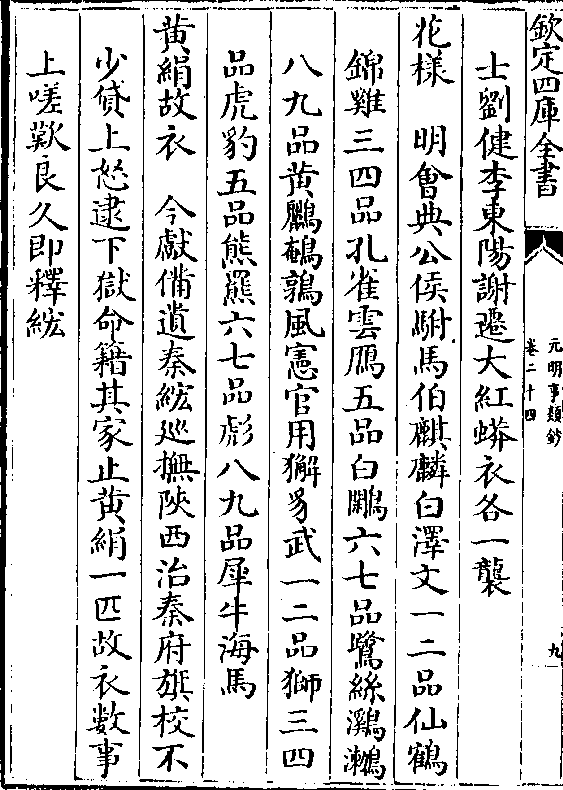 欽定四庫全書
元明事類鈔
卷二十四
九
士劉健李東陽謝遷大紅蟒衣各一襲
花樣　明會典公侯駙馬伯麒麟白澤文一二品仙鶴
錦雞三四品孔雀雲鴈五品白鷴六七品鷺絲鸂𪆟
八九品黄鸝鵪鶉風憲官用獬豸武一二品獅三四
品虎豹五品熊羆六七品彪八九品犀牛海馬
黄絹故衣　今獻備遺秦紘巡撫陜西治秦府旗校不
少貸上怒逮下獄命籍其家止黄絹一匹故衣數事
上嗟歎良久即釋紘